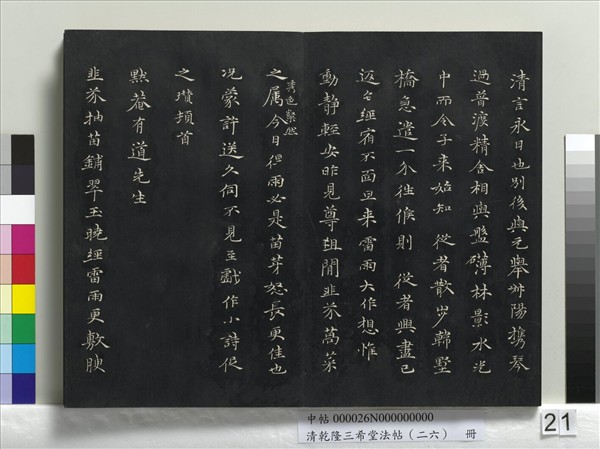 清言永日也別後與元舉山陽攜琴
過普渡精舍相與盤礴林影水光
中而令子來始知 從者散步韓墅
橋急遣一介往候則 從者興盡已
返矣經宿不面旦來雷雨大作想惟
動靜輕安昨見尊俎間韭芥萵菜
青色粲然
之属今日但雨必是苗芽怒長更佳也
况蒙許送久伺不見至戲作小詩促
之瓚頓首
點菴有道先生
韭芥抽苗鋪翠玉曉經雷雨更敷腴
中帖 000026N000000000
清乾隆三希堂法帖(二六) 冊
21